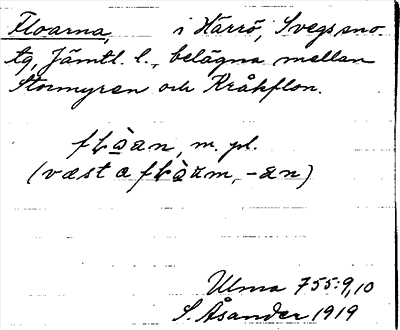 Floarna, i Härrö, Svegs sno.
tg, Jämtl. l., belägna mellan
Stormyren och Kråkflon.
flꭤ̀an, m. pl.
(væst a flꭤ̀am, -an)
Ulma 755:9,10
S. Åsander 1919